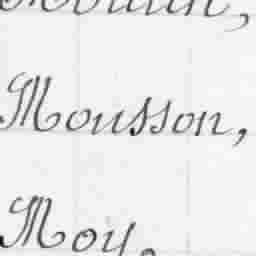 Mousson,
Moy.